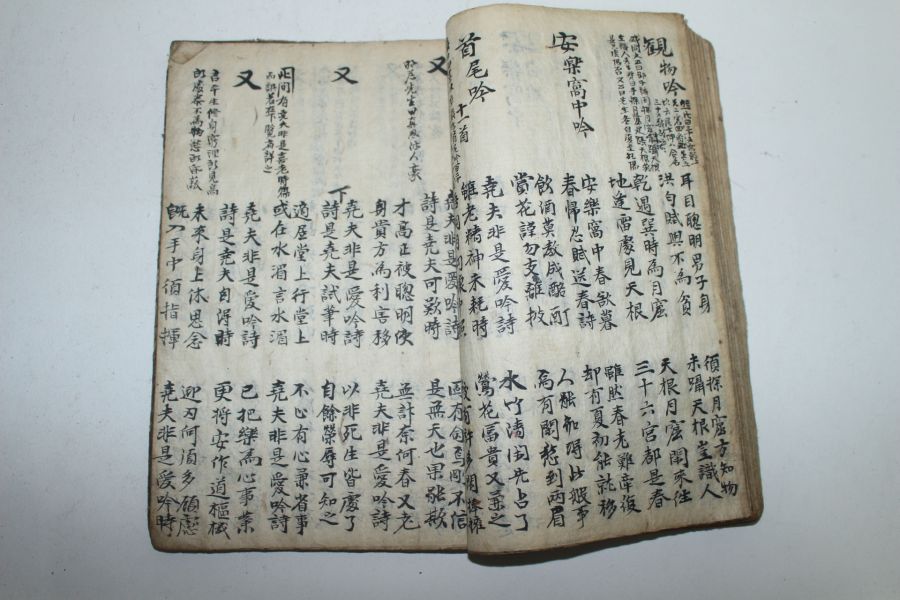 観物吟
耳目聰明男子身
洪匀賦與不為貧
須探月窟方知物
未躡天根豈識人
乾遇巽時為月窟
地逢雷處見天根
天根月窟閑来往
三十六宮都是春
安樂窩中吟
安樂窩中春欲暮
春帰忍賦送春詩
雖然春老難牽復
却有夏初能就移
飲酒莫教成酩酊
賞花謹勿支離披
人能知得此般事
焉有閑愁到兩眉
首尾吟 十一首
堯夫非是愛吟詩
雖老精神未耗時
水竹清閑先占了
鶯花富貴又兼之
又
愛吟詩
詩是堯夫可歎時
不信
是無天也果能欺
才高正被聰明使
身貴方為利害移
並計奈何春又老
堯夫非是愛吟詩
又
下
堯夫非是愛吟詩
詩是堯夫試筆時
以非死生皆處了
自餘榮辱可知之
此間有堯夫非是喜老時篇
而誤書在下覧者詳之
適居堂上行堂上
或在水湄言水湄
不心有心兼省事
堯夫非是愛吟詩
又
堯夫非是愛吟詩
詩是堯夫自得時
已把樂為心事業
更將安作道樞機
未来身上休思念
既入手中須指揮
迎刃何須多顧慮
堯夫非是愛吟時